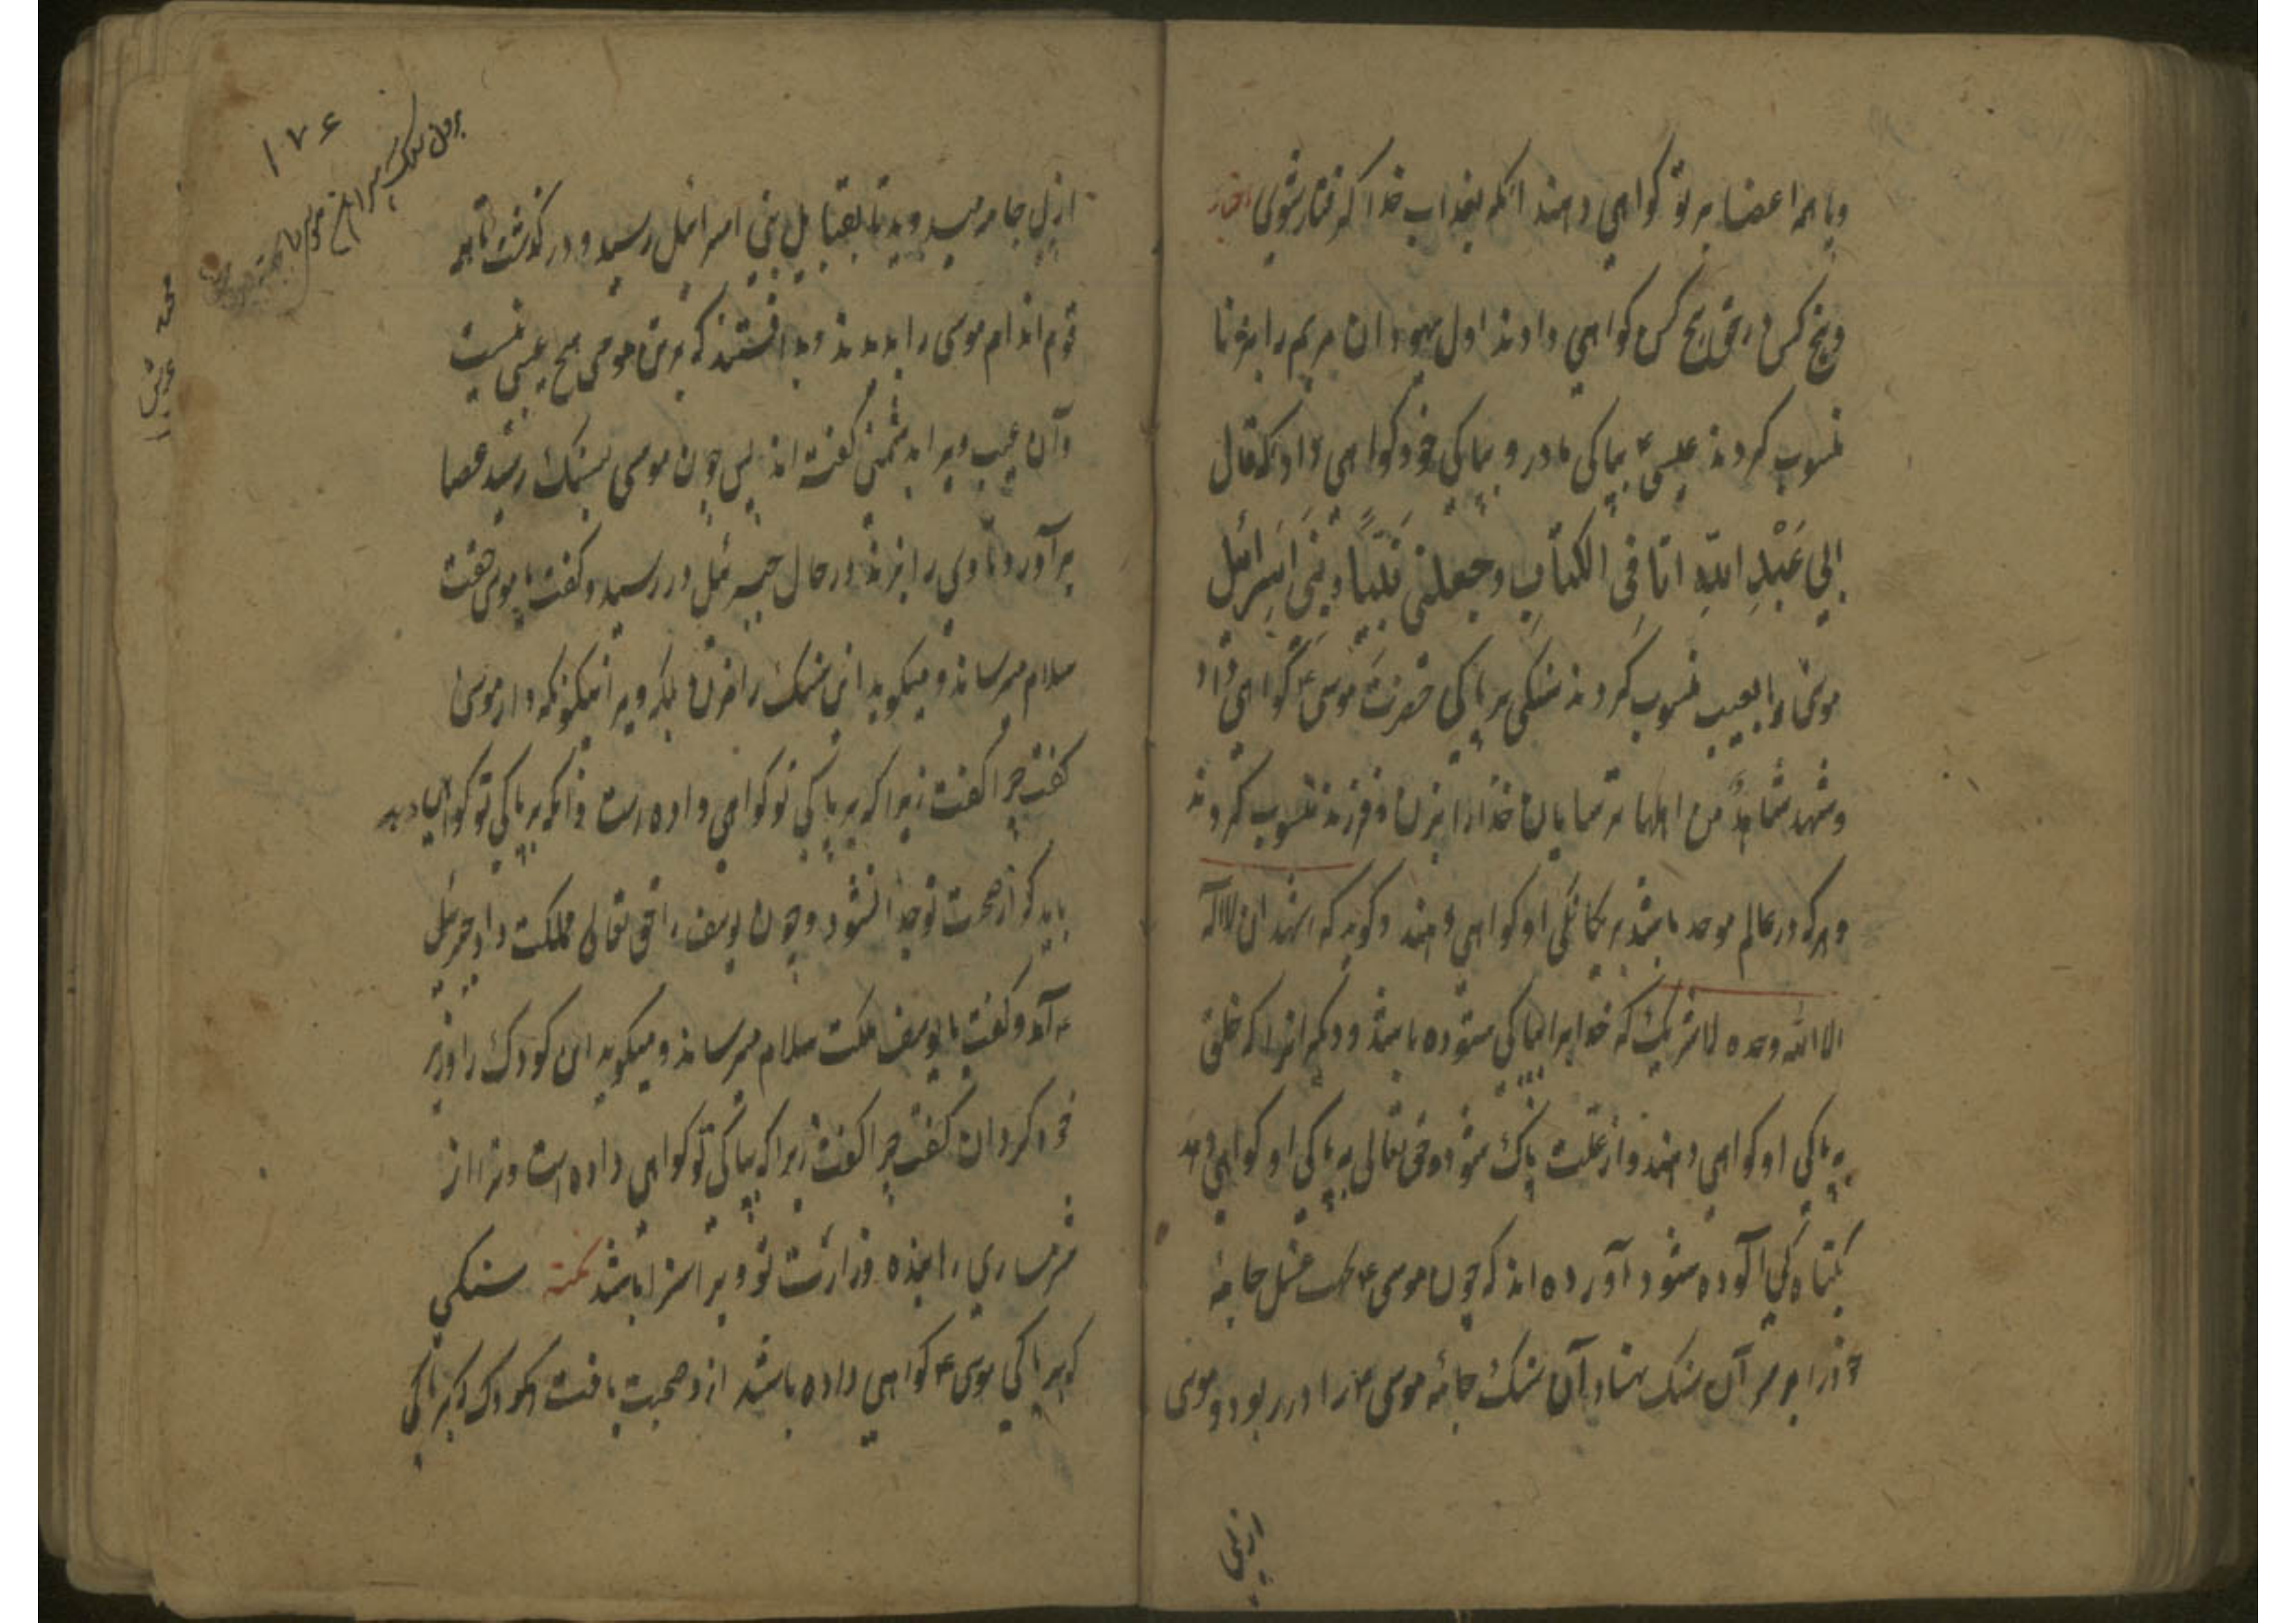 وباهمه اعضا بر تو کواهی دهند انکه بعذاب خدا کرفتار شوی
وپنج کس در حق پنج کس کواهی دادند اول یهودان مریم را بزنا
منسوب کردند عیسی ۴ بپاکی مادر و بپاکی خود کواهی داد که قال
انی عبد الله اتانی الکتاب وجعلنی نبیا وبنی اسرائیل
موسی را بعیب منسوب کردند سنکی بر پاکی حضرت موسی ۴ کواهی داد
وشهد شاهد من اهلها ترسایان خدا را بزن و فرزند منسوب کردند
و هرکه در عالم موحد باشد بر یکانکی او کواهی دهند و کوید که اشهد ان لا اله
الا الله وحده لا شریک که خدایرا بپاکی ستوده باشد و دیکر انرا که خلق
به پاکی او کواهی دهند و از علت پاک شود و حق تعالی به پاکی او کواهی دهد
بکناه کی آلوده شود آورده اند که چون موسی ۴ بجهت غسل جامه
خود را بر سر آن سنک نهاد آن سنک جامه موسی ۴ را در ربود و موسی
از پی
۱۷۶
از پی جامه میدوید تا بقبایل بنی اسرائیل رسید و در کذشت تا همه
قوم اندام موسی را بدیدند و بدانستند که بر تن موسی هیچ عیبی نیست
وآن عیب ویرا بدشمنی کفته اند پس چون موسی بسنک رسید عصا
بر آورد تا وی را بزند در حال جبرئیل در رسید و کفت یا موسی حقت
سلام میرساند و میکوید این سنک را مزن بلکه ویرا نیکو نکه دار موسی
کفت چرا کفت زیرا که بر پاکی تو کواهی داده است و آنکه بر پاکی تو کواهی دهد
باید کو از صحبت تو جدا نشود و چون یوسف را حق تعالی مملکت داد جبرئیل
۴ آمد و کفت یا یوسف ملکت سلام میرساند و میکوید این کودک را وزیر
خود کردان کفت چرا کفت زیرا که بپاکی تو کواهی داده است و ترا از
شرمساری رهانیده وزارت تو ویرا سزا باشد نکته سنکی
که بر پاکی موسی ۴ کواهی داده باشد ازو صحبت یافت و کودک که بر پاکی